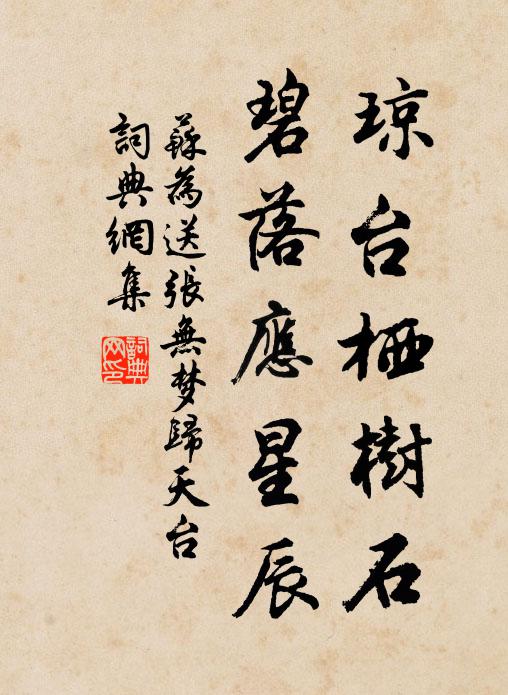 琼台栖樹石
碧落應星辰
蘇為送張無梦歸天台
詞典網集
詞典网印